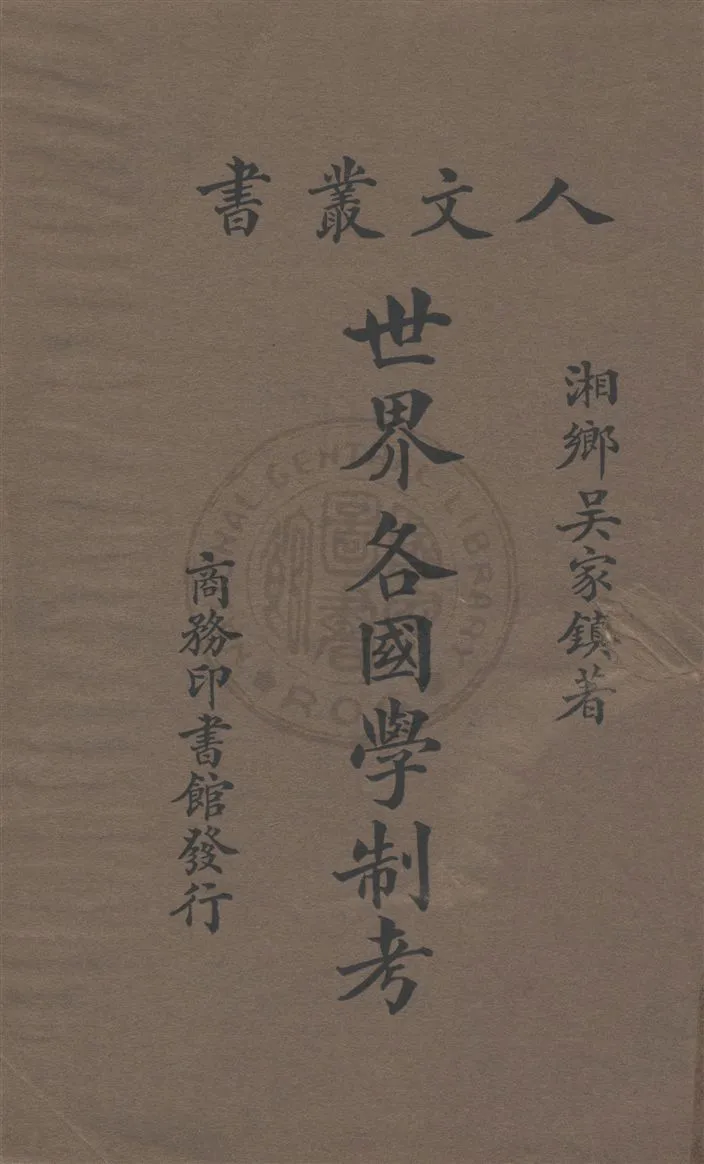 人文叢書
湘鄉吴家鎮著
世界各國學制考
商務印書館發行
NATIONAL CENTRAL LIBRARY
R.O.C.